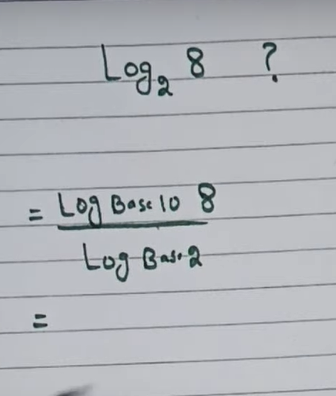 Log₂ 8 ?
= Log Base 10 8
Log Base 2
=